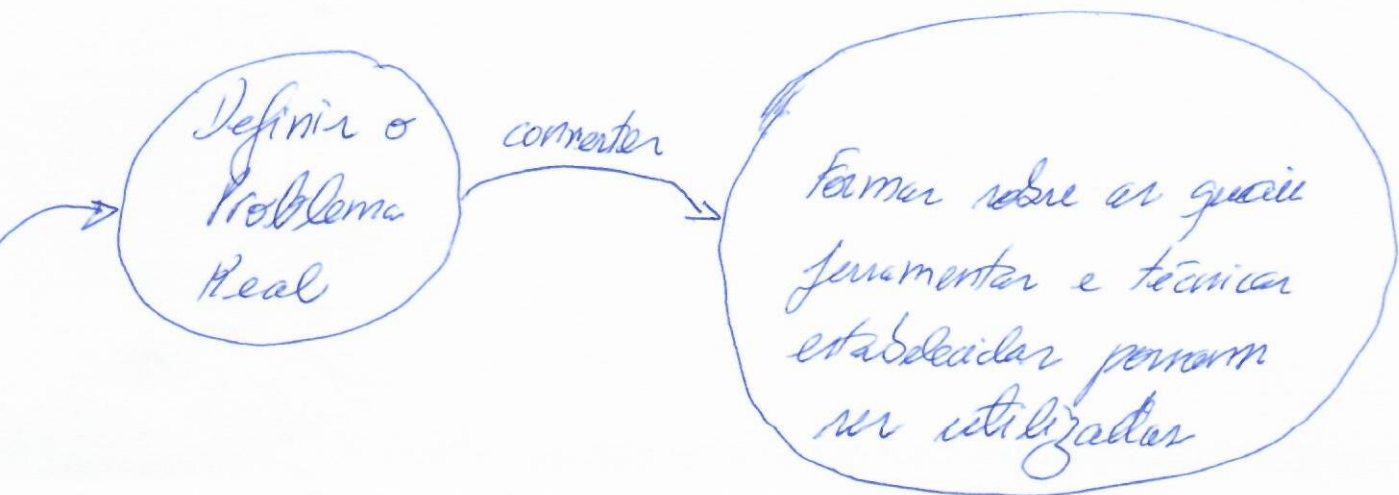 Definir o
Problema
Real
converter
Formas sobre as quais
ferramentas e técnicas
estabelecidas possam
ser utilizadas